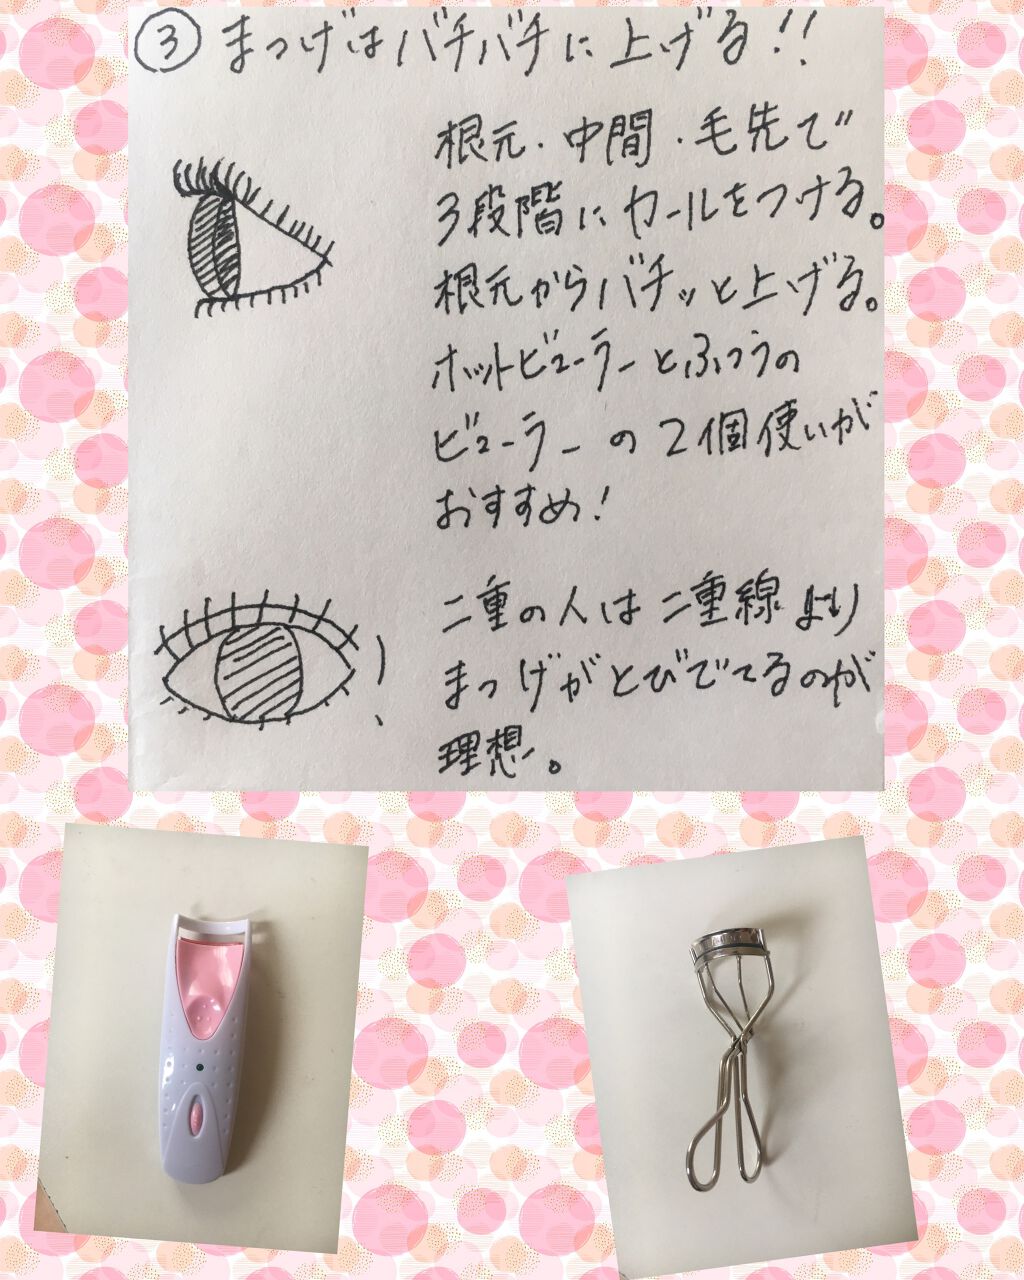 ③ まつげはバチバチに上げる!!
根元・中間・毛先で
3段階にカールをつける。
根元からバチッと上げる。
ホットビューラーとふつうの
ビューラーの2個使いが
おすすめ!
二重の人は二重線より
まつげがとびでてるのが
理想。